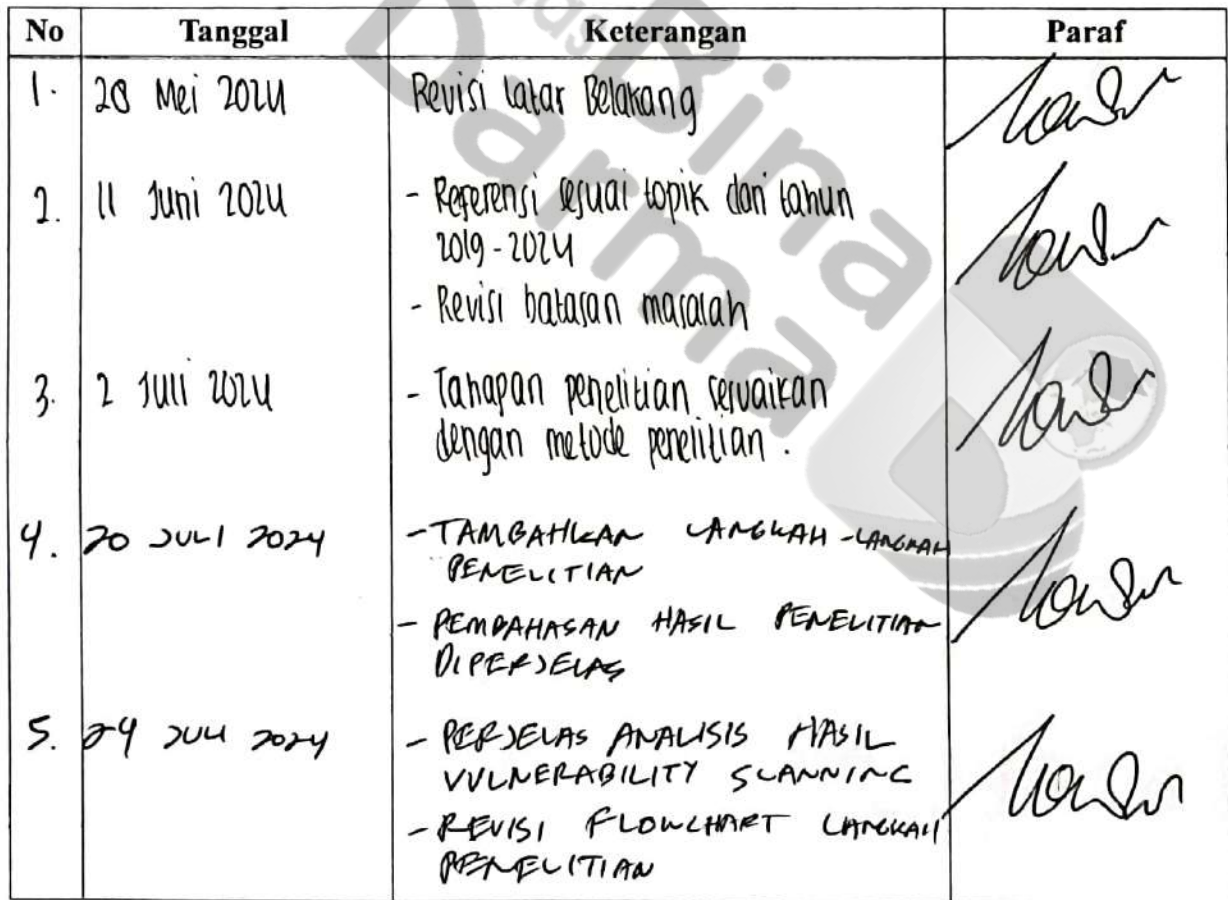 No Tanggal Keterangan Paraf
1. 28 Mei 2024 Revisi Latar Belakang
2. 11 Juni 2024 - Referensi sesuai topik dari tahun
2019 - 2024
- Revisi batasan masalah
3. 2 Juli 2024 - Tahapan penelitian sesuaikan
dengan metode penelitian.
4. 20 JULI 2024 - TAMBAHKAN LANGKAH-LANGKAH
PENELITIAN
- PEMBAHASAN HASIL PENELITIAN
DIPERJELAS
5. 24 JULI 2024 - PERJELAS ANALISIS HASIL
VULNERABILITY SCANNING
- REVISI FLOWCHART LANGKAH
PENELITIAN
Bina
Darma